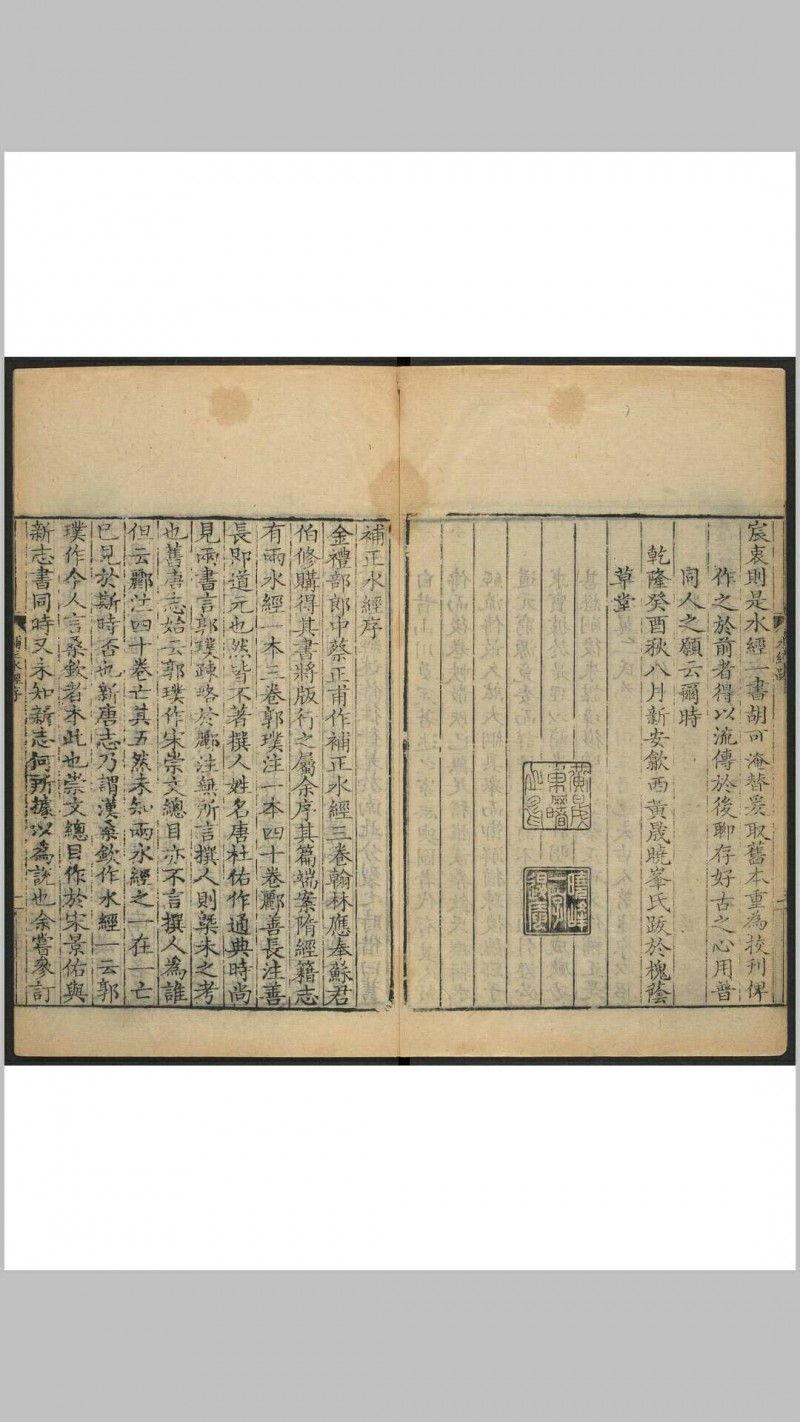 宸衷則是水經一書胡可淹替爰取舊本重為挍刊俾
作之於前者得以流傳於後聊存好古之心用普
同人之願云爾時
乾隆癸酉秋八月新安歙西黃晟曉峯氏跋於槐蔭
草堂
黃晟
東曙
氏
曉峰
一字
補正水經序
金禮部郎中蔡正甫作補正水經三卷翰林應奉蘇君
伯修購得其書將版行之屬余序其篇端案隋經籍志
有兩水經一本三卷郭璞注一本四十卷酈善長注善
長即道元也然皆不著撰人姓名唐杜佑作通典時尚
見兩書言郭璞疎略於酈注無所言撰人則槩未之考
也舊唐志始云郭璞作宋崇文總目亦不言撰人為誰
但云酈注四十卷亡其五然未知兩水經之一在一亡
已見於斯時否也新唐志乃謂漢桑欽作水經一云郭
璞作今人言桑欽者本此也崇文總目作於宋景佑與
新志書同時又未知新志何所據以為說也余嘗參訂